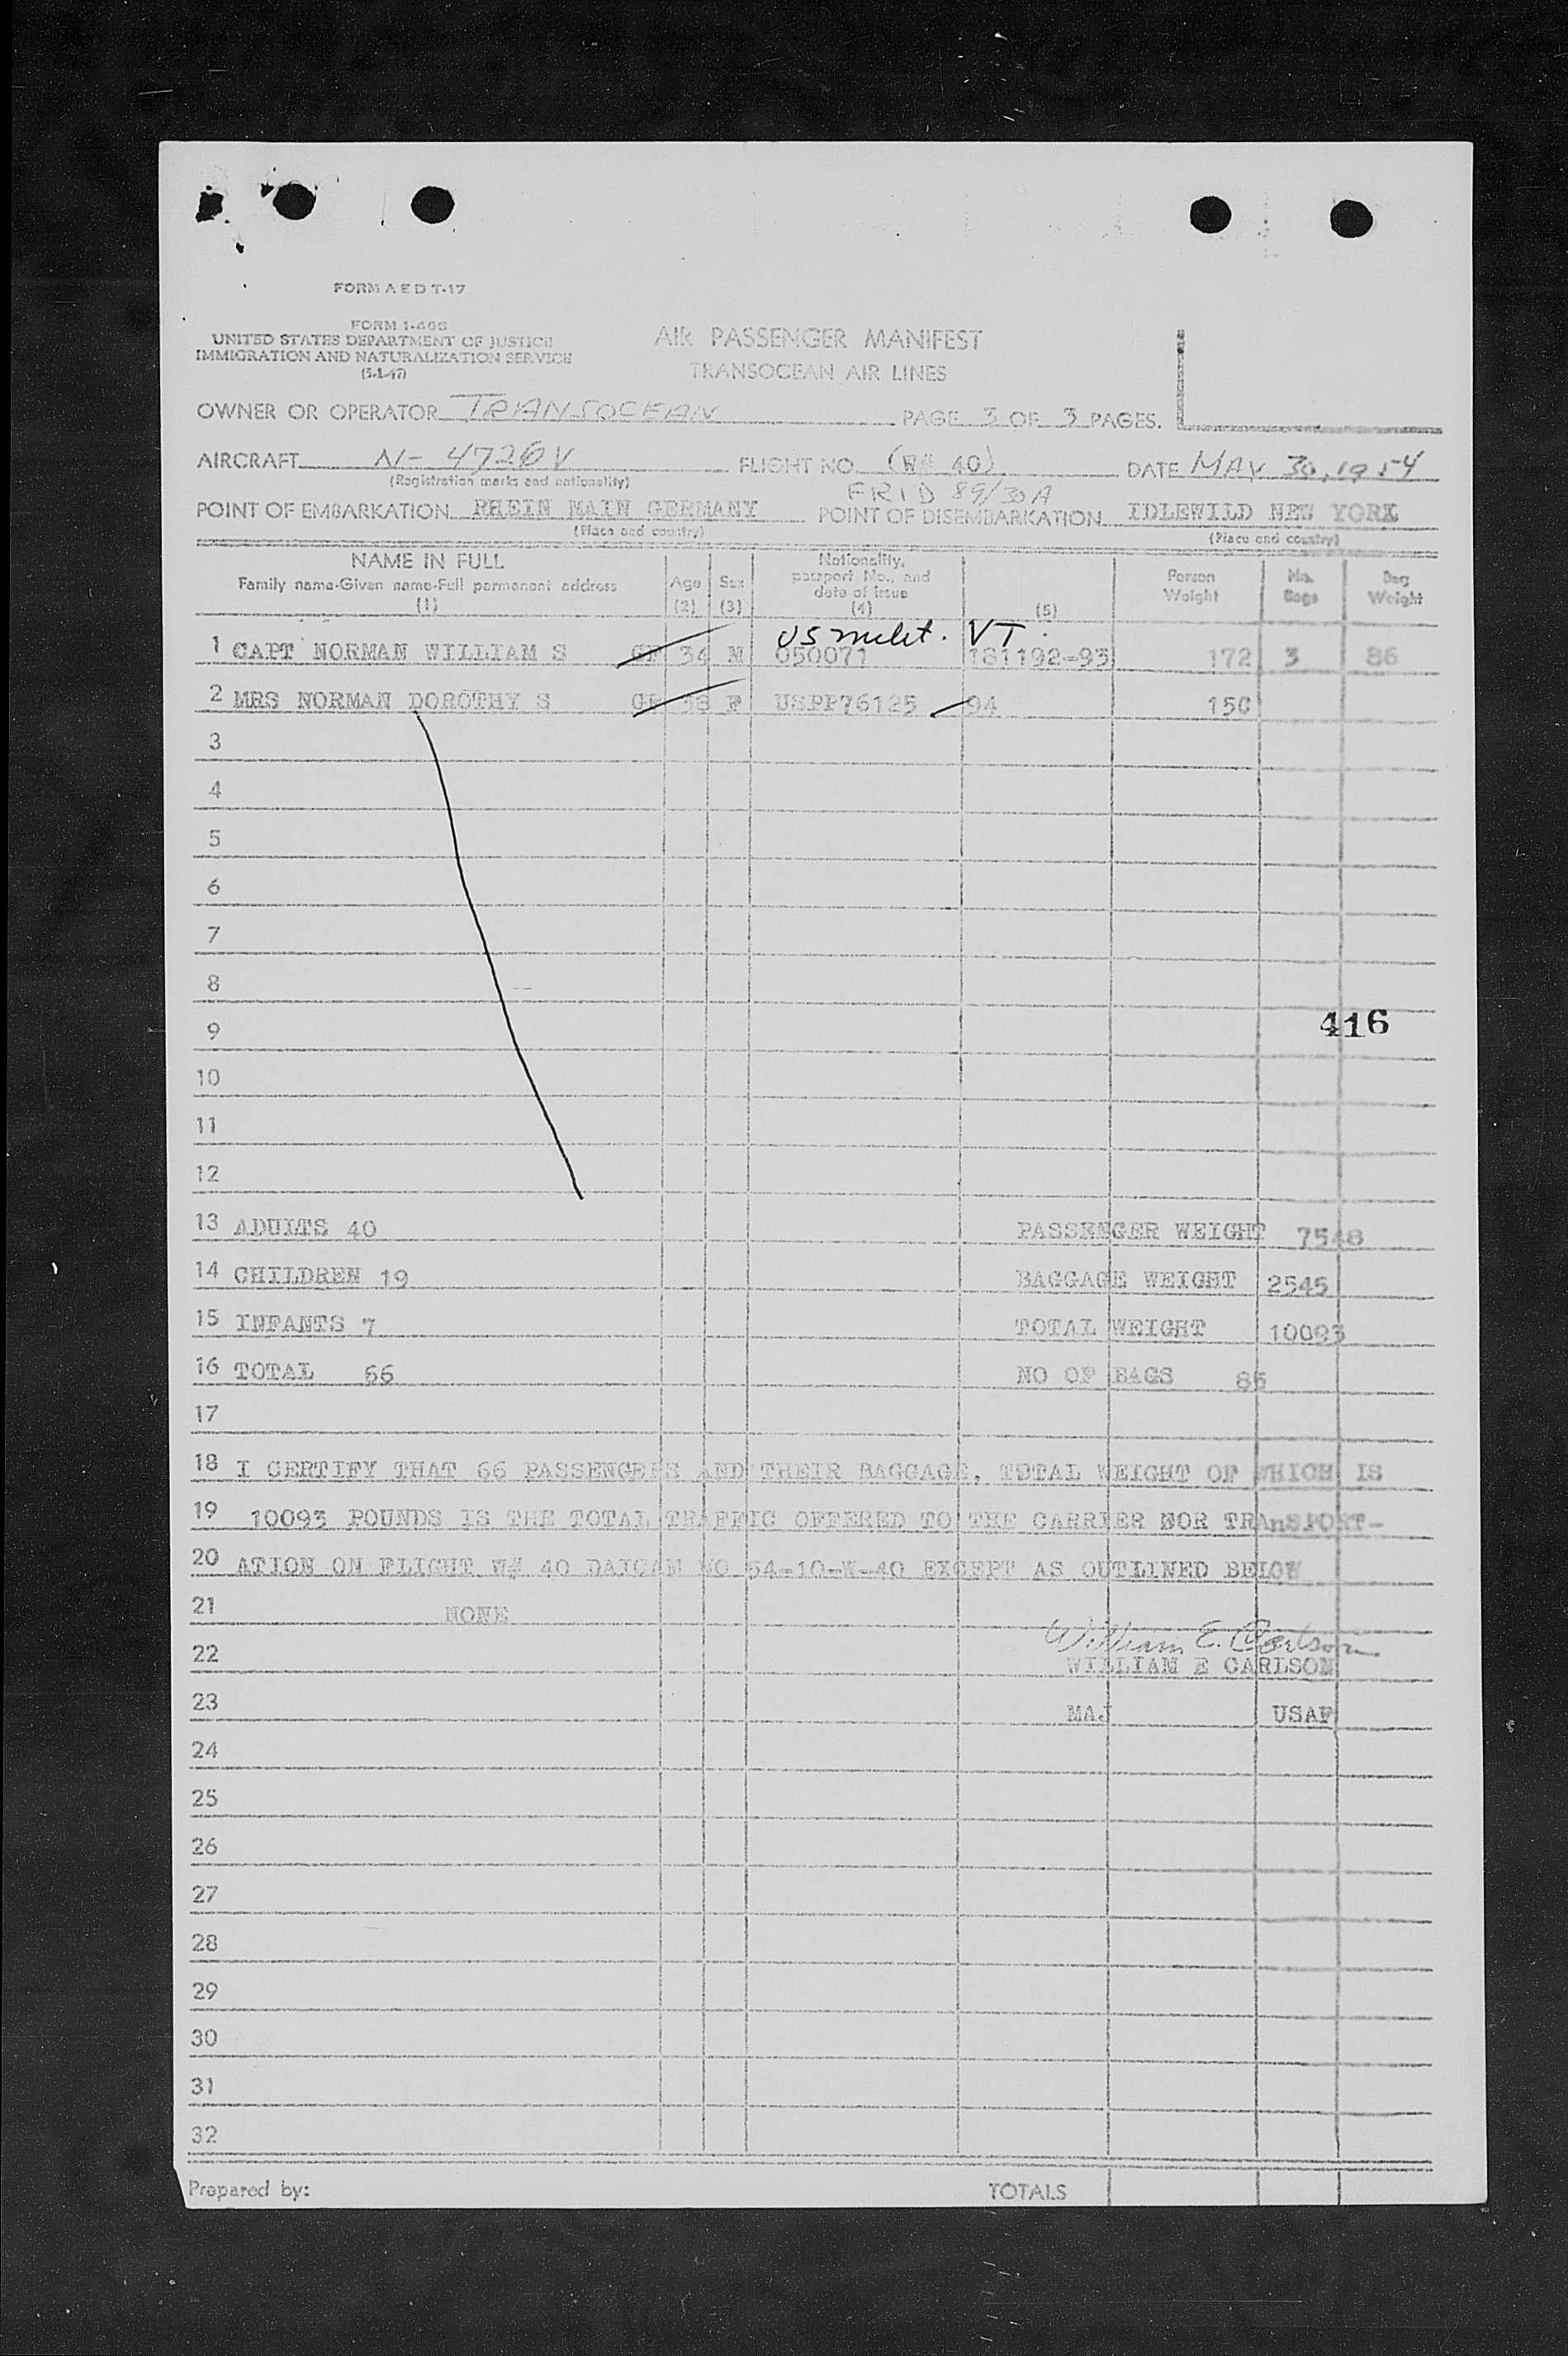 FORM A E D T-17
FORM I-466
UNITED STATES DEPARTMENT OF JUSTICE
IMMIGRATION AND NATURALIZATION SERVICE
(5-1-47)
AIR PASSENGER MANIFEST
TRANSOCEAN AIR LINES
OWNER OR OPERATOR TRANSOCEAN PAGE 3 OF 3 PAGES.
AIRCRAFT N-4726V FLIGHT NO. (W# 40) DATE MAY 30, 1954
(Registration marks and nationality)
FRID 89/30A
POINT OF EMBARKATION RHEIN MAIN GERMANY POINT OF DISEMBARKATION IDLEWILD NEW YORK
(Place and country) (Place and country)
NAME IN FULL
Family name-Given name-Full permanent address
(1)
Age
(2)
Sex
(3)
Nationality,
passport No., and
date of issue
(4)
(5)
Person
Weight
No.
Bags
Bag
Weight
US milit. VT.
1 CAPT NORMAN WILLIAM S 34 M 050071 181192-93 172 3 86
2 MRS NORMAN DOROTHY S 38 F USPP76125 94 150
3
4
5
6
7
8
9
416
10
11
12
13 ADULTS 40 PASSENGER WEIGHT 7548
14 CHILDREN 19 BAGGAGE WEIGHT 2545
15 INFANTS 7 TOTAL WEIGHT 10093
16 TOTAL 66 NO OF BAGS 86
17
18 I CERTIFY THAT 66 PASSENGERS AND THEIR BAGGAGE, TOTAL WEIGHT OF WHICH IS
19 10093 POUNDS IS THE TOTAL TRAFFIC OFFERED TO THE CARRIER NOR TRAnSPORT-
20 ATION ON FLIGHT W# 40 DAICAM NO 54-10-W-40 EXCEPT AS OUTLINED BELOW
21 NONE
William E. Carlson
22 WILLIAM E CARLSON
23 MAJ USAF
24
25
26
27
28
29
30
31
32
Prepared by: TOTALS